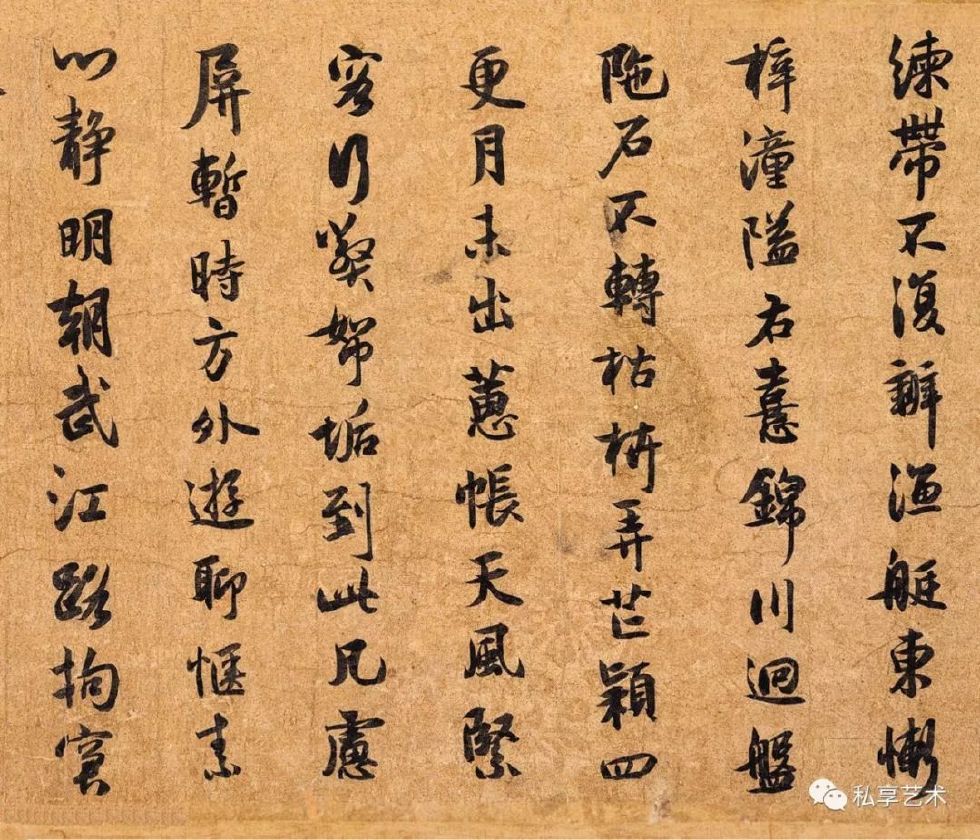 練帶不復辨漁艇東慚
梓潼隘右憙錦川迥盤
陁石不轉枯枿弄芒穎四
更月未出蕙帳天風緊
客行帤垢到此凡慮
屏暫時方外遊聊愜素
心静明朝武江路拘
私享艺术